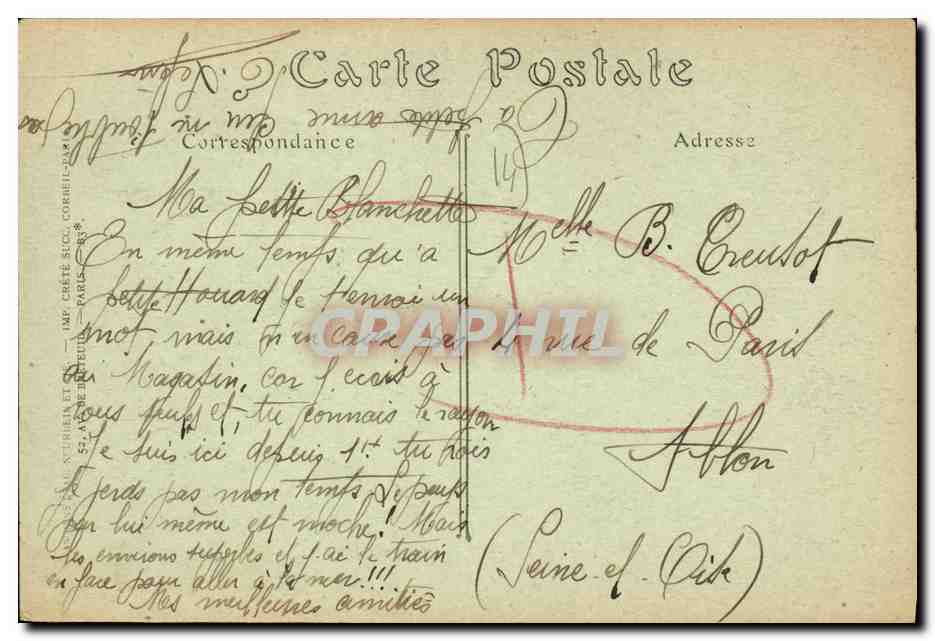 Carte Postale
Correspondance
Adresse
14
Ma petite Blanchette
En même temps qu'a
petite Houard je t'envoi un
mot, mais n'en cause pas
au Magasin, car j'ecris à
vous seules et, tu connais le rayon
Je suis ici depuis 1ʰ tu vois
je perds pas mon temps. Le pays
en lui même est moche! Mais
les environs superbes et j'ai le train
en face pour aller à la mer!!!
Mes meilleures amitiés
Melle B. Creusot
4 rue de Paris
Ablon
(Seine-et-Oise)
IMP. CRÉTÉ SUCC. CORBEIL-PARIS
52, AVE DE BRETEUIL — PARIS
CPARHIL